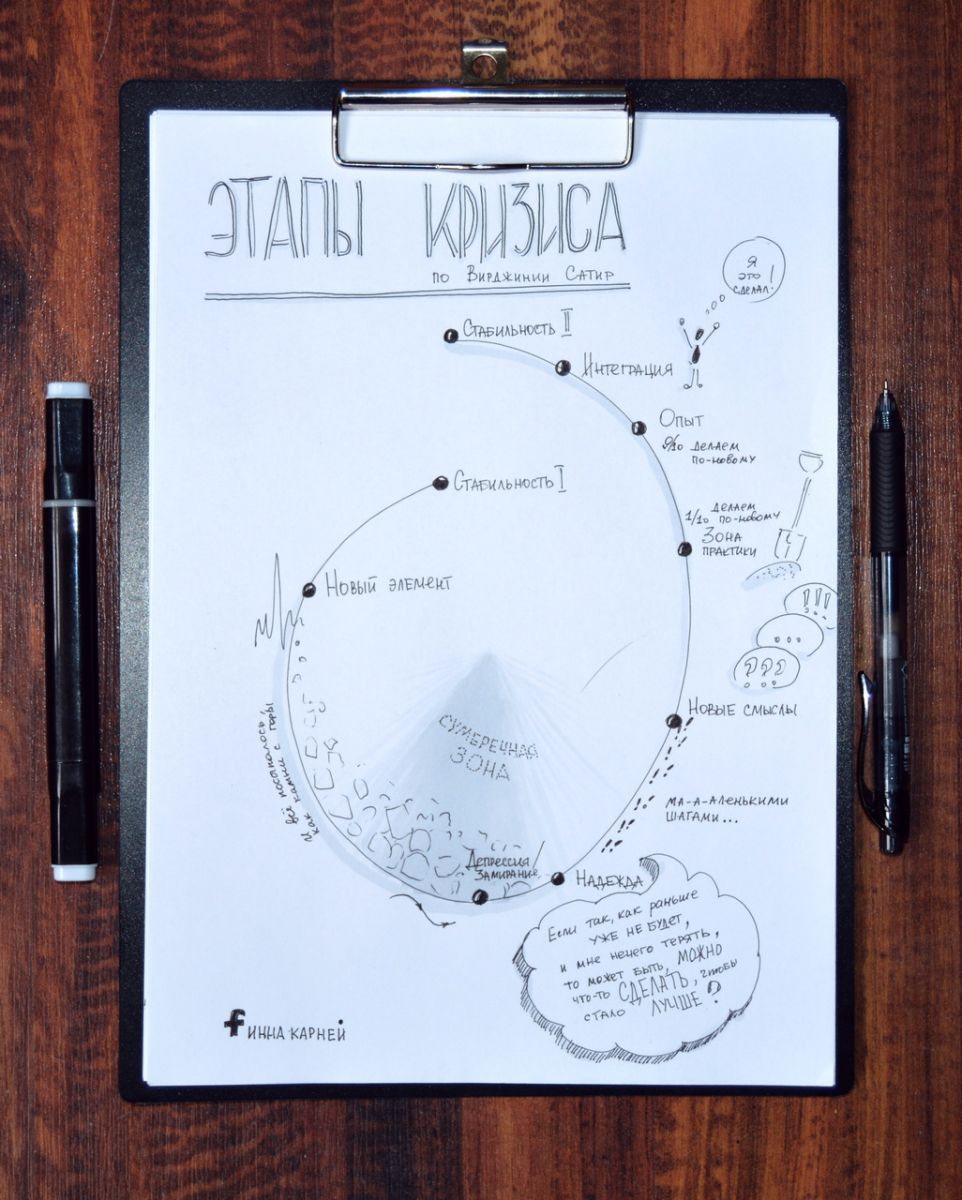 ЭТАПЫ КРИЗИСА
по Вирджинии Сатир
Я
это
сделал!
Стабильность II
Интеграция
Опыт
9/10 делаем
по-новому
Стабильность I
делаем
1/10 по-новому
Зона
практики
Новый элемент
!!!
...
???
Новые смыслы
всё посыпалось,
как камни с горы
СУМЕРЕЧНАЯ
ЗОНА
ма-а-аленькими
шагами...
Депрессия/
Замирание
Надежда
Если так, как раньше
уже не будет,
и мне нечего терять,
то может быть, можно
что-то СДЕЛАТЬ, чтобы
стало ЛУЧШЕ?
f ИННА КАРНЕЙ